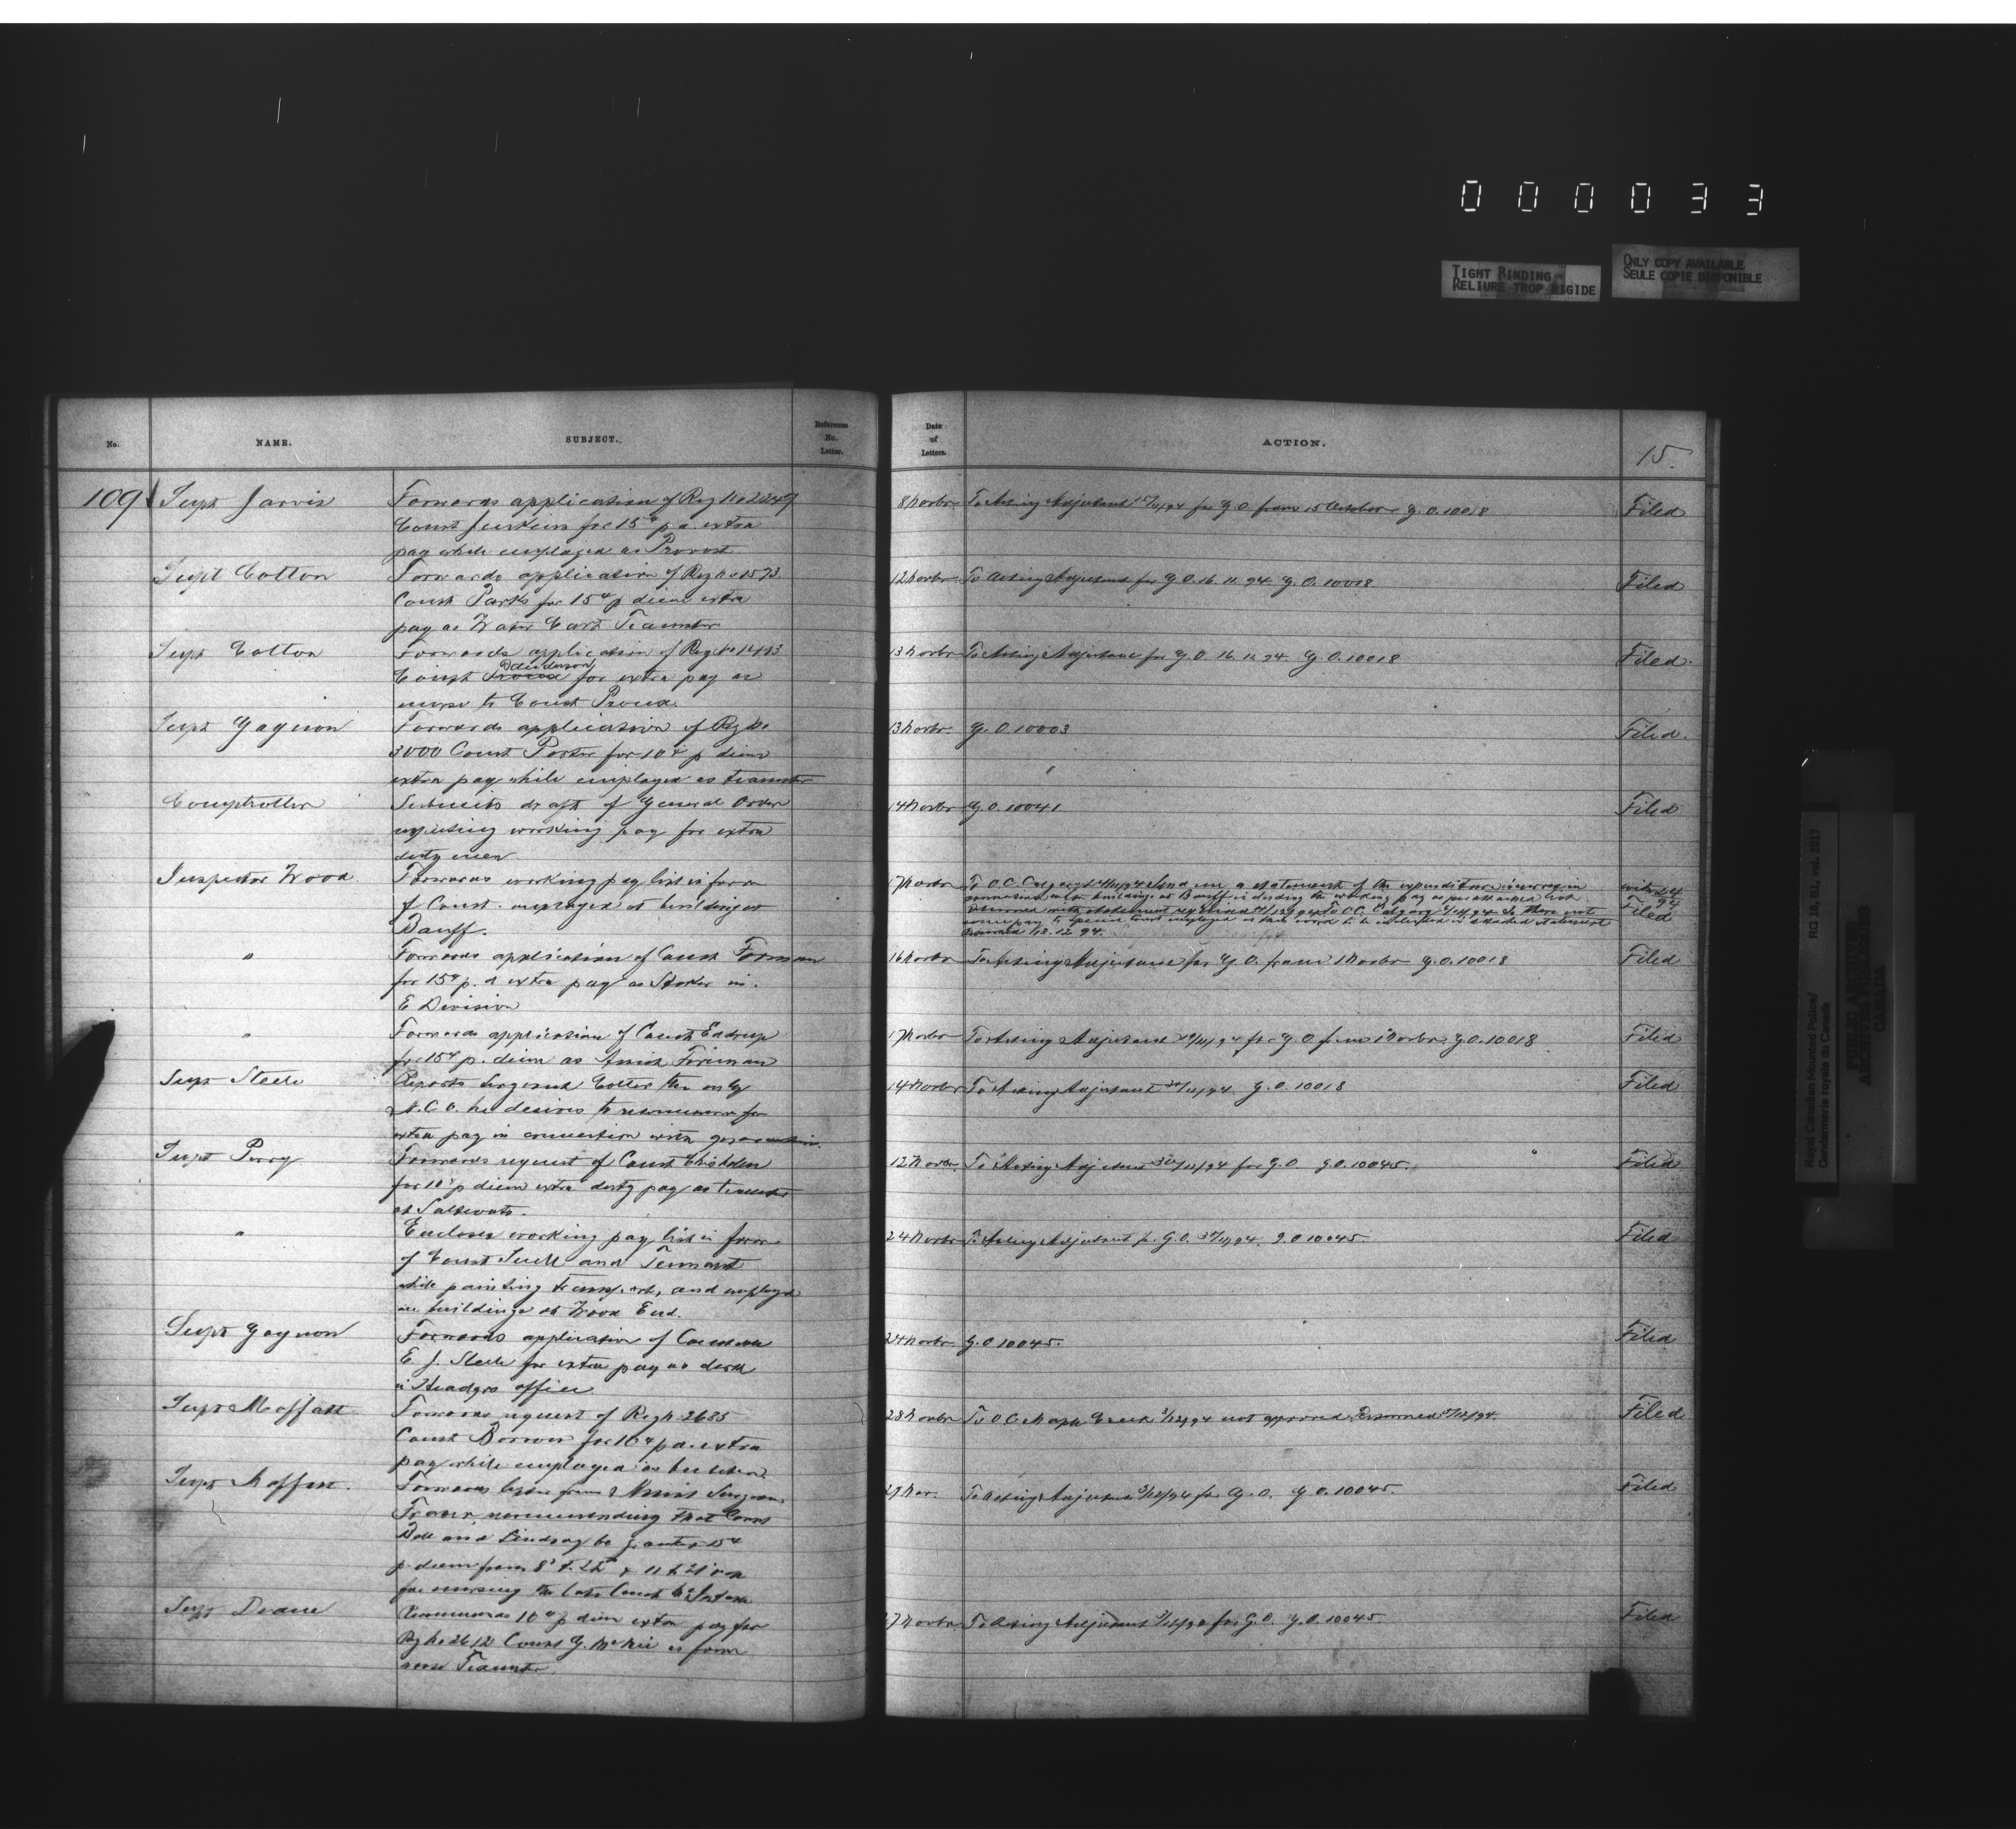 000033
TIGHT BINDING
RELIURE TROP RIGIDE
ONLY COPY AVAILABLE
SEULE COPIE DISPONIBLE
No.
NAME.
SUBJECT.
Reference
No.
Letter.
Date
of
Letters.
ACTION.
15.
109
Supt Jarvis
Forwards application of Reg No 2249
Const Jenkins for 15¢ p d. extra
pay while employed as Provost
8 Novbr
To Acting Adjutant 15/11/94 for G.O. from 15 October G.O. 10018
Filed
Supt Cotton
Forwards application of Reg No 1573
Const Parks for 15¢ p diem extra
pay as Water Cart Teamster
12 Novbr
To Acting Adjutant for G.O. 16.11.94. G.O. 10018
Filed
Supt Cotton
Forwards application of Reg No 1493
Const Proud for extra pay as
nurse to Const Proud.
13 Novbr
To Acting Adjutant for G.O. 16.11.94. G.O. 10018
Filed.
Supt Gagnon
Forwards application of Reg No
3000 Const Porter for 10¢ p diem
extra pay while employed as teamster
13 Novbr.
G.O. 10003
Filed.
Comptroller
Submits draft of General Order
respecting working pay for extra
duty men.
14 Novbr
G.O. 10041
Filed
Inspector Wood.
Forwards working pay list in favor
of Const. employed at building at
Banff.
17 Novbr
To O.C. Calgary send me a statement of the expenditure incurred in
connection with buildings at Banff including the working pay as per attached list
Filed
"
Forwards application of Const Forman
for 15¢ p. d extra pay as Stoker in
E Division
16 Novbr
To Acting Adjutant for G.O. from 1 Novbr G.O. 10018
Filed
"
Forwards application of Const
for 15¢ p. diem as Assist Foreman
17 Novbr
To Acting Adjutant for G.O. from 1 Novbr G.O. 10018
Filed
Supt Steele
Reports Sergeant the only
N.C.O. he desires to recommend for
extra pay in connection with
14 Novbr
To Acting Adjutant G.O. 10018
Filed
Supt Perry
Forwards request of Const Chisholm
for 10¢ p diem extra duty pay as teamster
at Saltcoats.
12 Novbr.
To Acting Adjutant for G.O. G.O. 10045.
Filed
"
Encloses working pay list in favor
of Const and Tennant
while painting transport, and employed
on buildings at Wood End.
24 Novbr
To Acting Adjutant for G.O. G.O. 10045
Filed
Supt Gagnon
Forwards application of Const
E. J. Steele for extra pay as clerk
in Headqrs office
24 Novbr
G.O. 10045.
Filed
Supt Moffatt
Forwards request of Reg No 2685
Const for 10¢ p d. extra
pay while employed as butcher
28 Novbr
To O.C. Maple Creek 3/12/94 not approved. Returned
Filed
Supt Moffatt.
Forwards letter from Assist Surgeon
Fraser, recommending that Const
Bell and Lindsay be granted 15¢
p. diem from
for nursing the late Const McIntosh
27 Nov.
To Acting Adjutant 3/12/94 for G.O. G.O. 10045.
Filed
Supt Deane
Recommends 10¢ p diem extra pay for
Reg No 2612 Const G. as
Teamster
27 Novbr
To Acting Adjutant for G.O. G.O. 10045
Filed
Royal Canadian Mounted Police/
Gendarmerie royale du Canada
RG 18, B1, vol. 2017
PUBLIC ARCHIVES
ARCHIVES PUBLIQUES
CANADA